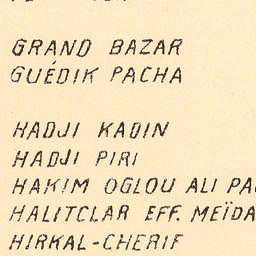 GRAND BAZAR
GUÉDIK PACHA
HADJI KADIN
HADJI PIRI
HAKIM OGLOU ALI PA
HALITCLAR EFF. MEÏDA
HIRKAL-CHERIF